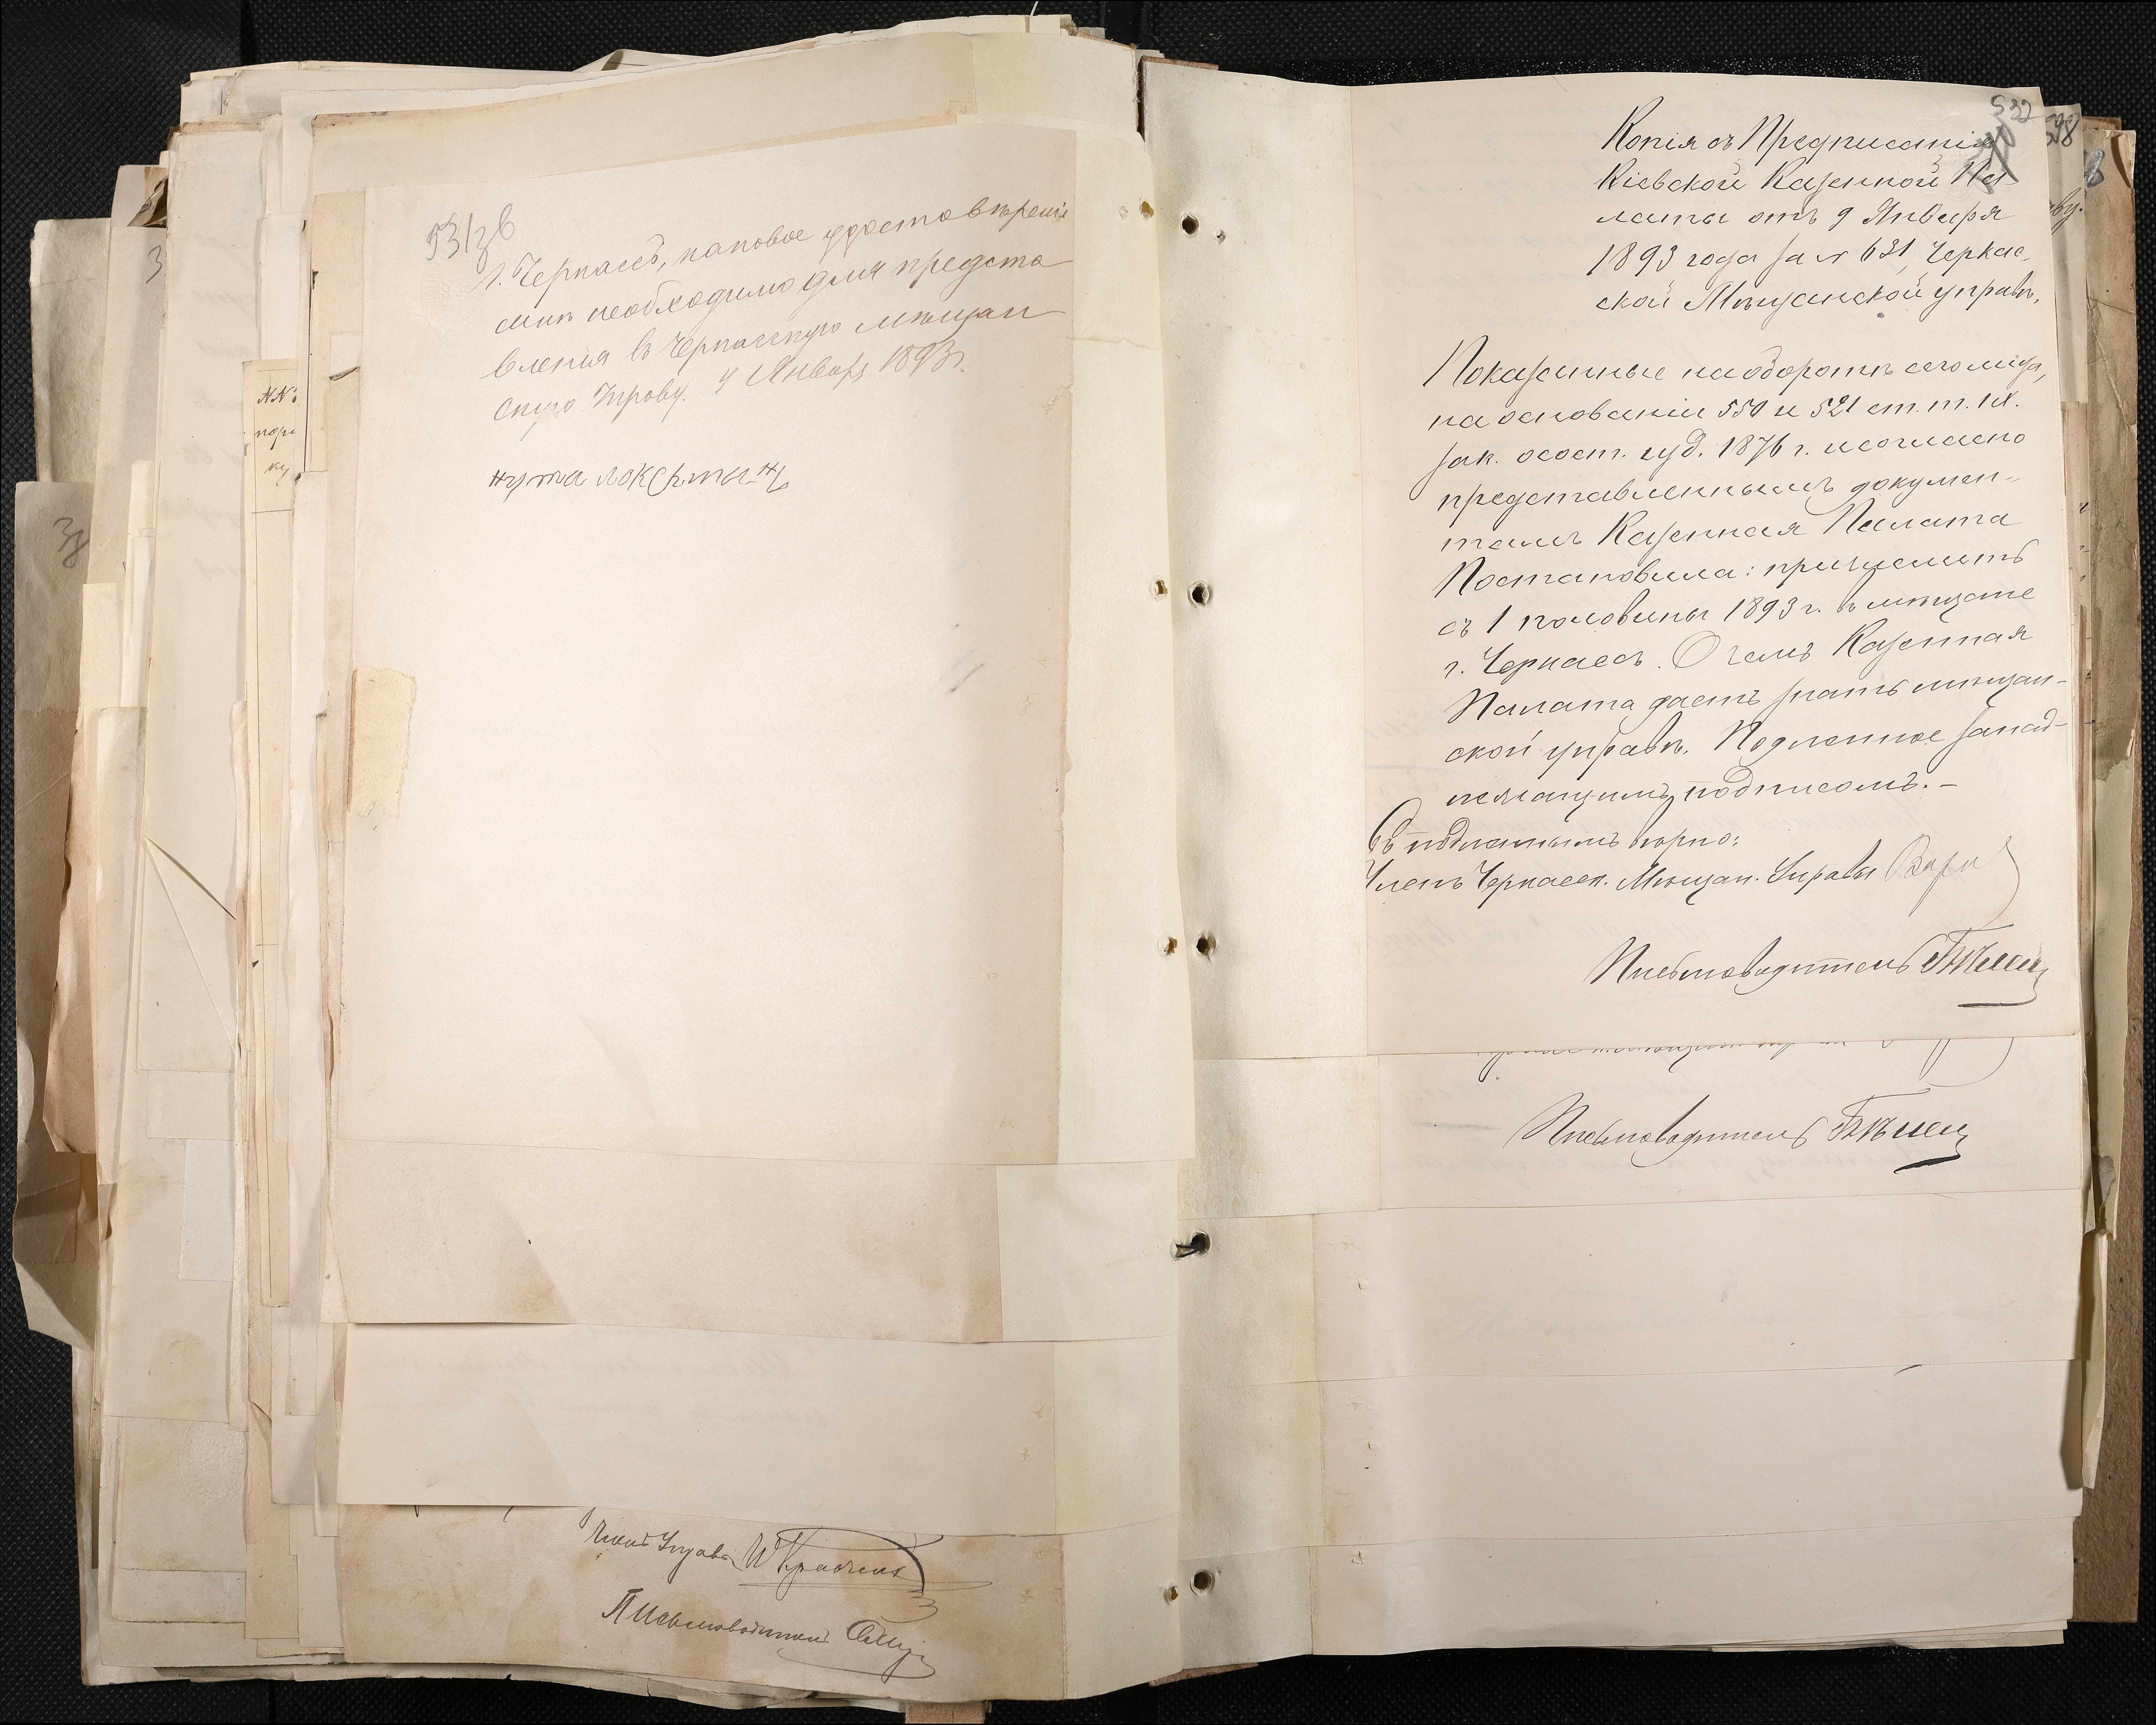 531зв
г. Черкассъ, каковое удостовѣреніе
мнѣ необходимо для предста
вленія въ Черкасскую мѣщан
скую Управу. 4 Января 1893 г.
Членъ Управы
Письмоводитель
532
Копія съ Предписанія
Кіевской Казенной Па-
латы отъ 9 Января
1893 года за № 631, Черкас-
ской Мѣщанской управѣ.
Показанные на оборотѣ сего лица,
на основаніи 550 и 521 ст. т. IX.
зак. о сост. изд. 1876 г. и согласно
представленнымъ докумен-
тамъ Казенная Палата
Постановила: причислить
съ 1 половины 1893 г. въ мѣщане
г. Черкассъ. О чемъ Казенная
Палата даетъ знать мѣщан-
ской управѣ. Подленное за над-
лежащимъ подписомъ. –
Съ подленнымъ вѣрно:
Членъ Черкасск. Мѣщан. Управы
Письмоводитель
Письмоводитель